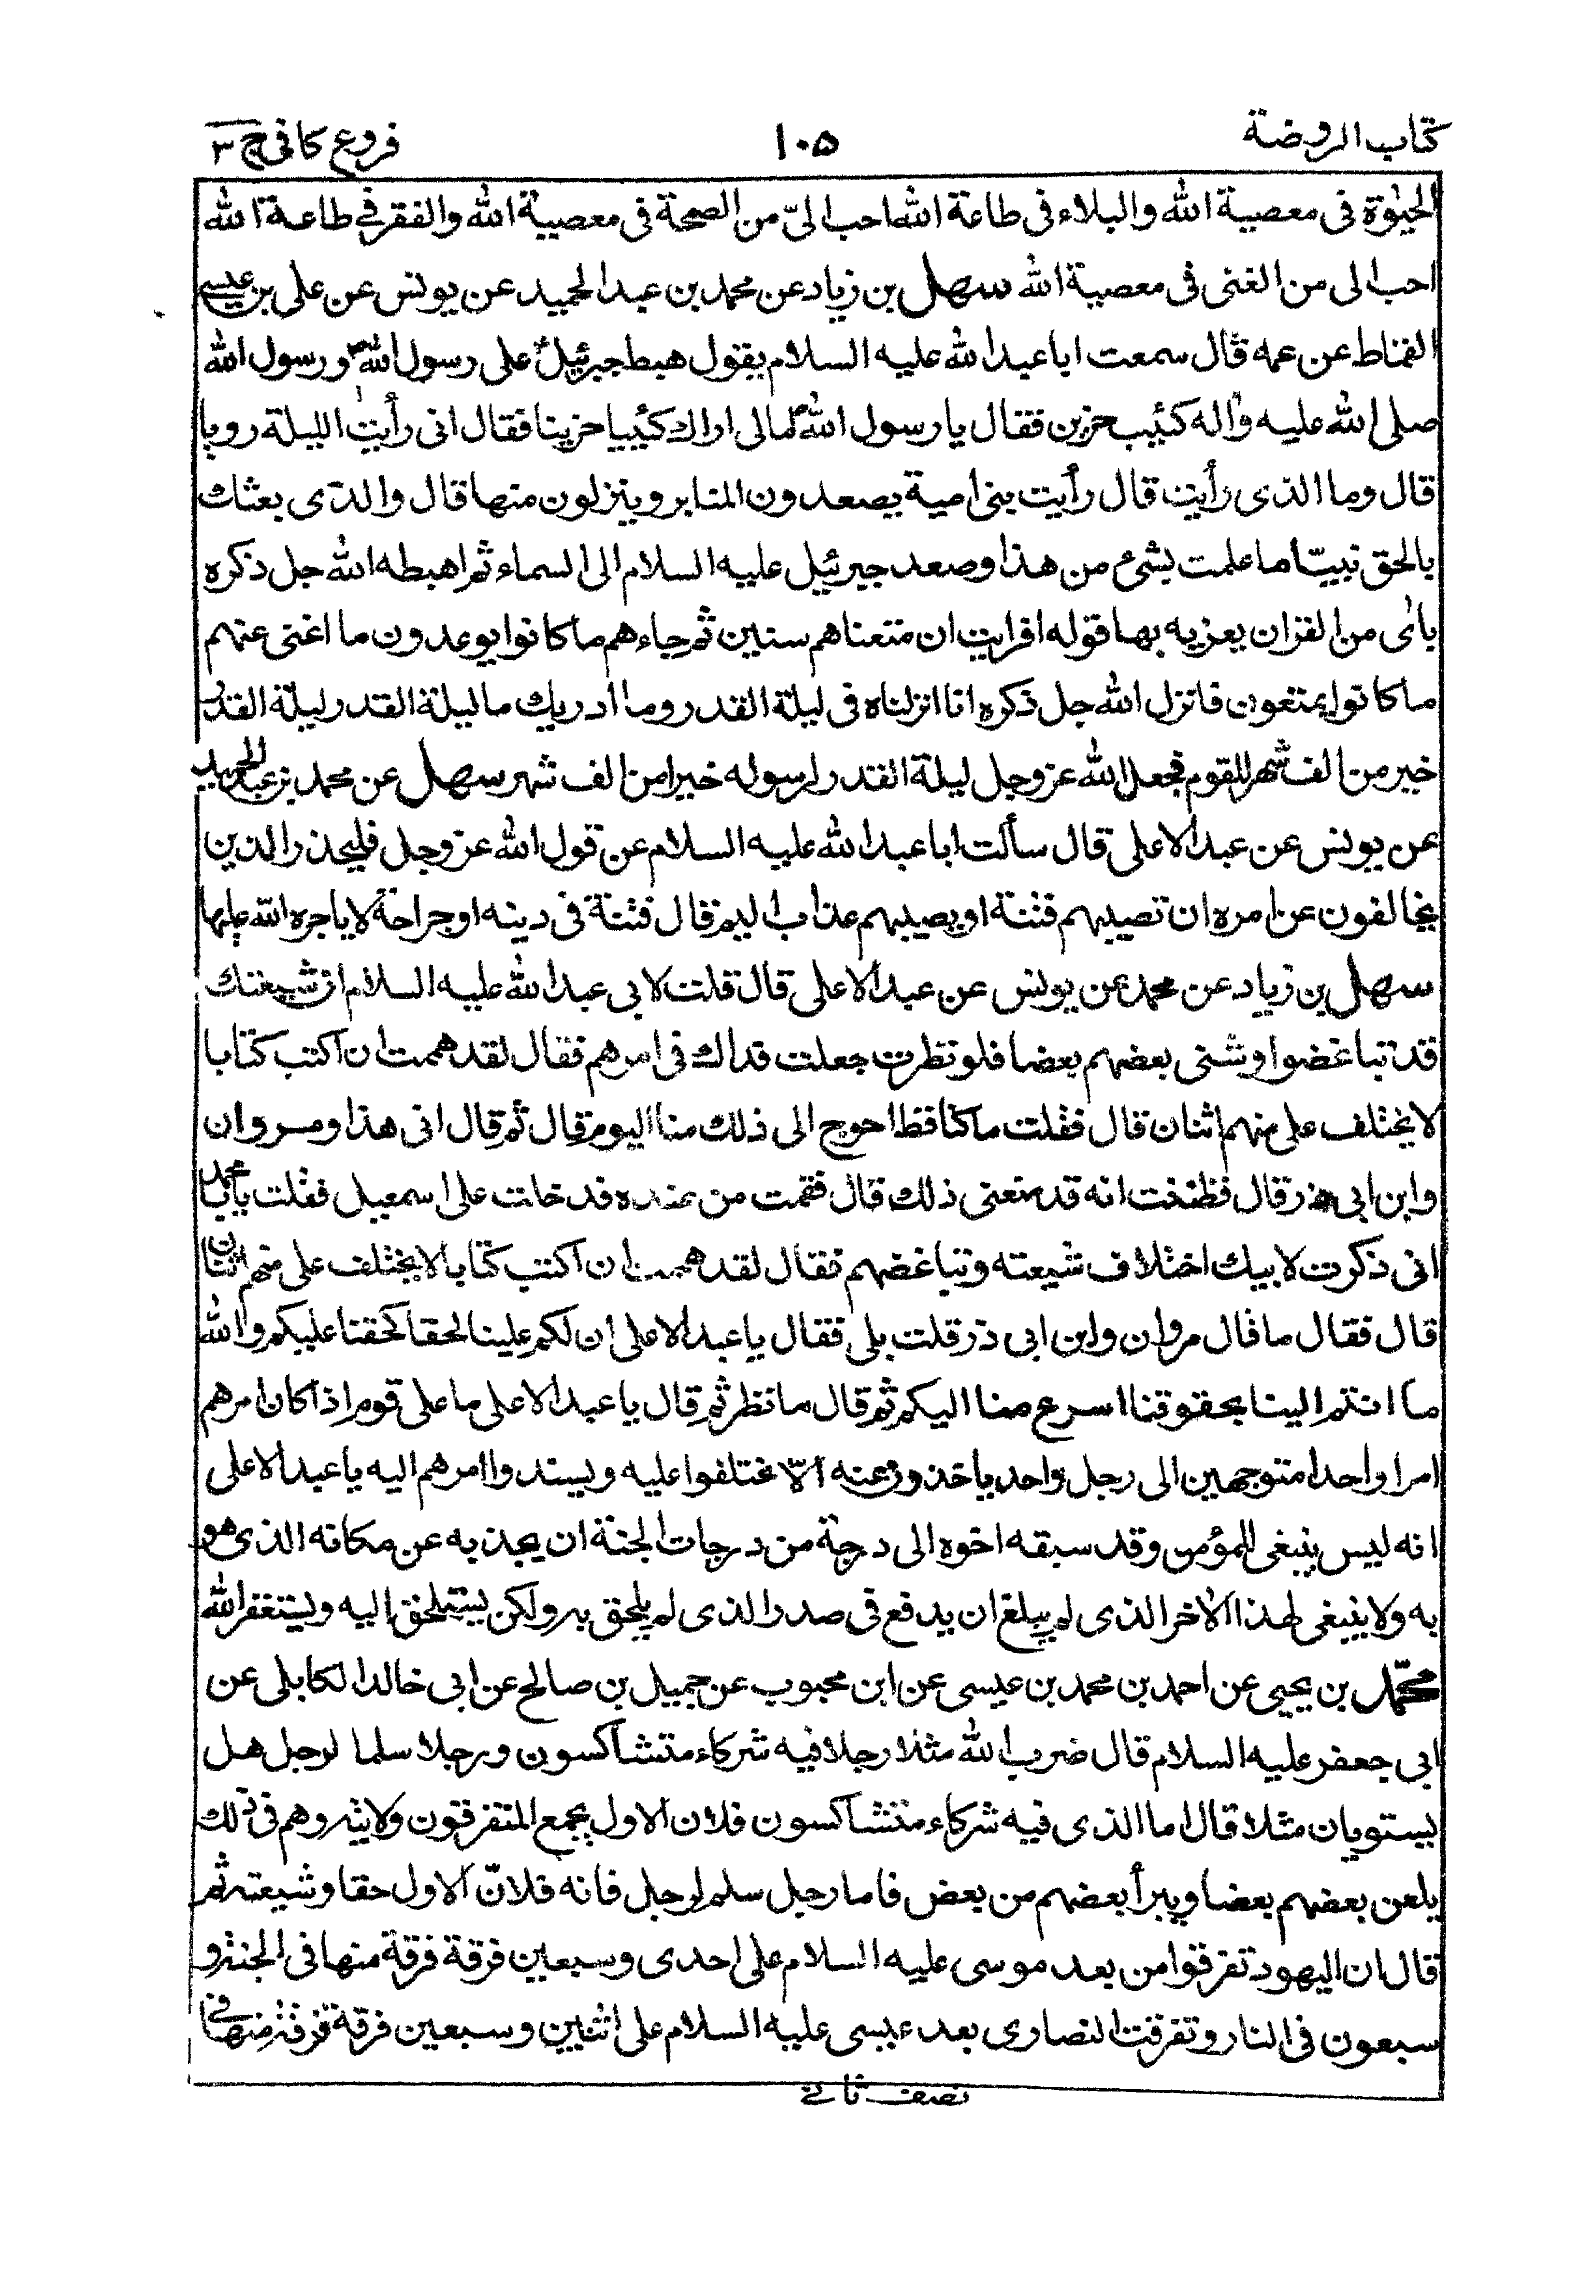 كتاب الروضة ١٠٥ فروع كافى ج ٣
الحيٰوة فى معصية الله والبلاء فى طاعة الله احب الىّ من الصحة فى معصية الله والفقر فى طاعة الله
احب الى من الغنى فى معصية الله سهل بن زياد عن محمد بن عبد الحميد عن يونس عن على بن عيسى
القماط عن عمه قال سمعت ابا عبد الله عليه السلام يقول هبط جبرئيل ع على رسول الله ص ورسول الله
صلى الله عليه واله كئيب حزين فقال يا رسول الله ص مالى اراك كئيبا حزينا فقال انى رأيت الليلة رويا
قال وما الذى رأيت قال رأيت بنى امية يصعدون المنابر وينزلون منها قال والذى بعثك
بالحق نبيّا ما علمت بشئ من هذا وصعد جبرئيل عليه السلام الى السماء ثم اهبطه الله جل ذكره
باٰى من القران يعزيه بها قوله افرايت ان متعناهم سنين ثم جاءهم ما كانوا يوعدون ما اغنى عنهم
ما كانوا يمتعون فانزل الله جل ذكره انا انزلناه فى ليلة القدر وما ادريك ما ليلة القدر ليلة القدر
خير من الف شهر للقوم فجعل الله عز وجل ليلة القدر لرسوله خيرا من الف شهر سهل عن محمد بن عبد الحميد
عن يونس عن عبد الاعلى قال سألت ابا عبد الله عليه السلام عن قول الله عز وجل فليحذر الذين
يخالفون عن امره ان تصيبهم فتنة او يصيبهم عذاب اليم قال فتنة فى دينه او جراحة لا ياجره الله عليها
سهل بن زياد عن محمد عن يونس عن عبد الاعلى قال قلت لابى عبد الله عليه السلام ان شيعتك
قد تباغضوا وشنى بعضهم بعضا فلو نظرت جعلت فداك فى امرهم فقال لقد هممت ان اكتب كتابا
لا يختلف على منهم اثنان قال فقلت ما كنا قط احوج الى ذلك منا اليوم قال ثم قال انى هذا ومروان
وابن ابى ذر قال فظننت انه قد منعنى ذلك قال فقمت من عنده فدخلت على اسمعيل فقلت يا با محمد
انى ذكرت لابيك اختلاف شيعته وتباغضهم فقال لقد هممت ان اكتب كتابا لا يختلف على منهم اثنان
قال فقال ما قال مروان وابن ابى ذر قلت بلى فقال يا عبد الاعلى ان لكم علينا لحقا كحقنا عليكم والله
ما انتم الينا بحقوقنا اسرع منا اليكم ثم قال سانظر ثم قال يا عبد الاعلى ما على قوم اذا كان امرهم
امرا واحدا متوجهين الى رجل واحد ياخذون عنه الّا يختلفوا عليه ويسندوا امرهم اليه يا عبد الاعلى
انه ليس ينبغى للمؤمن وقد سبقه اخوه الى درجة من درجات الجنة ان يجذبه عن مكانه الذى هو
به ولا ينبغى لهذا الاخر الذى لم يبلغ ان يدفع فى صدر الذى لم يلحق به ولكن يستلحق اليه ويستغفر الله
محمّد بن يحيى عن احمد بن محمد بن عيسى عن ابن محبوب عن جميل بن صالح عن ابى خالد الكابلى عن
ابى جعفر عليه السلام قال ضرب الله مثلا رجلا فيه شركاء متشاكسون ورجلا سلما لرجل هل
يستويان مثلا قال اما الذى فيه شركاء متشاكسون فلان الاول يجمع المتفرقون ولايته وهم فى ذلك
يلعن بعضهم بعضا ويبرأ بعضهم من بعض فاما رجل سلم لرجل فانه فلانّ الاول حقا وشيعته ثم
قال ان اليهود تفرقوا من بعد موسى عليه السلام على احدى وسبعين فرقة فرقة منها فى الجنة و
سبعون فى النار وتفرقت النصارى بعد عيسى عليه السلام على اثنين وسبعين فرقة فرقة منها فى
نصف ثانى